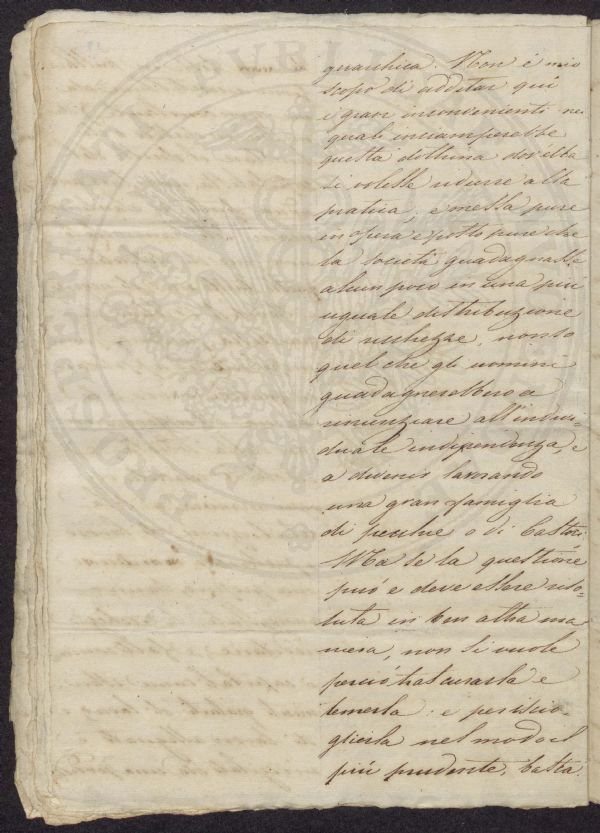 guarchica. Non é mio
scopo di additar quí
i gravi inconvenienti ne'
quali inciamperebbe
questa dottrina dov'ella
si volesse ridurre alla
pratica; e messa pure
in opera e posto pure che
la società guadagnasse
alcun poco in una piu
uguale distribuzione
di ricchezze, non so
quel che gli uomini
guadagnerebbero a
rinunziare all'indivi=
duale indipendenza, e
a divenir lavorando
una gran famiglia
di pecchie o di Castori.
Ma se la questione
può e deve essere riso=
luta in ben altra ma=
niera, non si vuole
perciò trascurarla e
temerla: e per iscio=
glierla nel modo il
piú prudente, basta